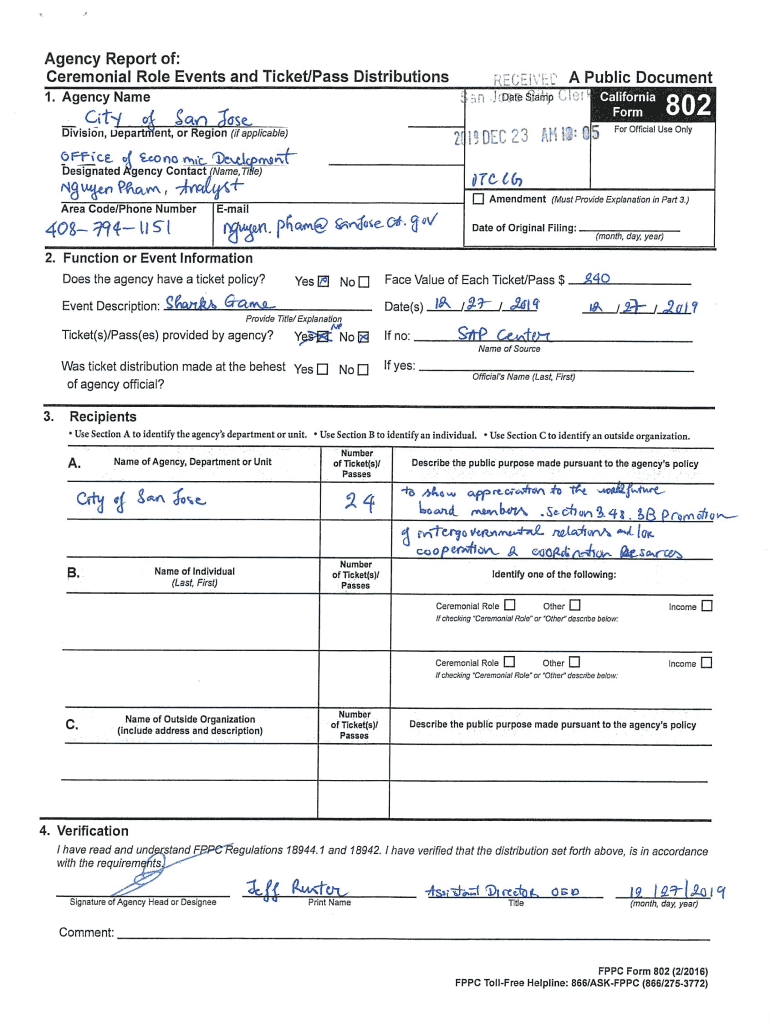 Agency Report of:
Ceremonial Role Events and Ticket/Pass Distributions
RECEIVED
A Public Document
1. Agency Name
City of San Jose
San Jose City Clerk
Date Stamp
California Form 802
Division, Department, or Region (if applicable)
2019 DEC 23 AM 10:05
For Official Use Only
OFFICE of Economic Development
Designated Agency Contact (Name, Title)
Nguyen Pham, Analyst
Amendment (Must Provide Explanation in Part 3.)
Area Code/Phone Number E-mail
408-794-1151 nguyen.pham@sanjoseca.gov
Date of Original Filing:
(month, day, year)
2. Function or Event Information
Does the agency have a ticket policy? Yes No Face Value of Each Ticket/Pass $ 240
Event Description: Sharks Game Date(s) 12 / 27 / 2019 12 / 27 / 2019
Provide Title/ Explanation
NP
Ticket(s)/Pass(es) provided by agency? Yes No If no: SAP Center
Name of Source
Was ticket distribution made at the behest of agency official? Yes No If yes:
Official's Name (Last, First)
3. Recipients
• Use Section A to identify the agency's department or unit. • Use Section B to identify an individual. • Use Section C to identify an outside organization.
A. Name of Agency, Department or Unit
Number of Ticket(s)/ Passes
Describe the public purpose made pursuant to the agency's policy
City of San Jose
24
to show appreciation to the work2future
board members. Section 3.48. 3B Promotion
of intergovernmental relations and/or
cooperation & coordination Resources
B. Name of Individual (Last, First)
Number of Ticket(s)/ Passes
Identify one of the following:
Ceremonial Role Other Income
If checking "Ceremonial Role" or "Other" describe below:
Ceremonial Role Other Income
If checking "Ceremonial Role" or "Other" describe below:
C. Name of Outside Organization (include address and description)
Number of Ticket(s)/ Passes
Describe the public purpose made pursuant to the agency's policy
4. Verification
I have read and understand FPPC Regulations 18944.1 and 18942. I have verified that the distribution set forth above, is in accordance
with the requirements.
Jeff Ruster Assistant Director OED 12/27/2019
Signature of Agency Head or Designee Print Name Title (month, day, year)
Comment:
FPPC Form 802 (2/2016)
FPPC Toll-Free Helpline: 866/ASK-FPPC (866/275-3772)